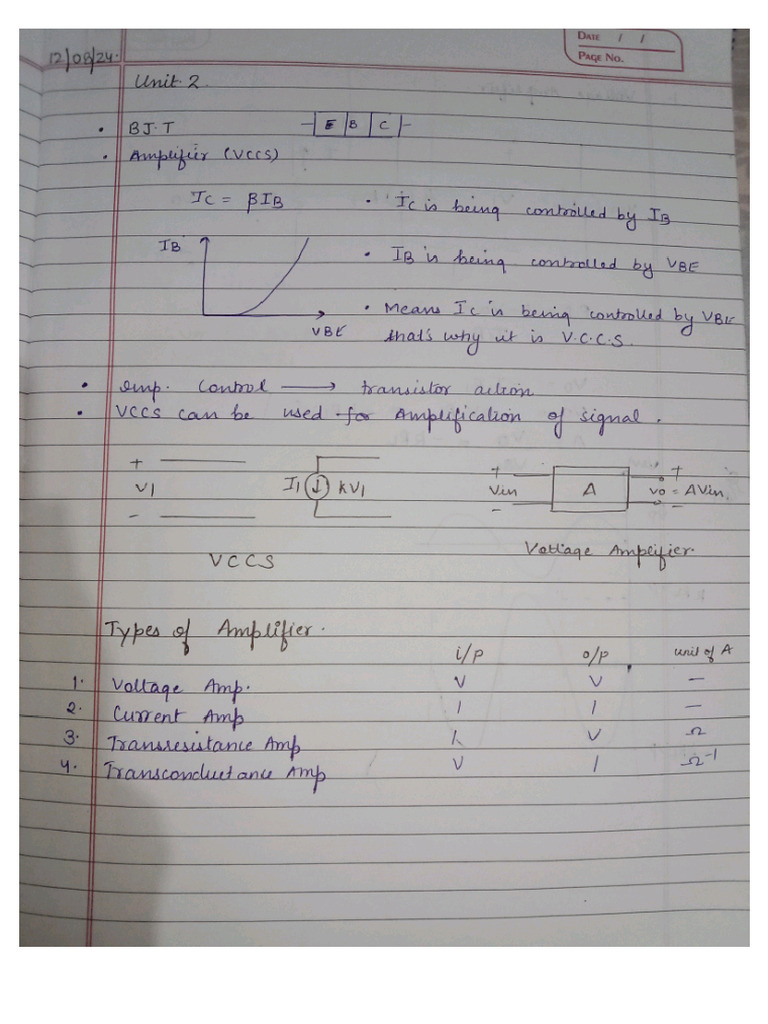 DATE / /
PAGE NO.
12/08/24.
Unit 2
• BJ.T E B C
• Amplifier (VCCS)
IC = βIB • IC is being controlled by IB
IB • IB is being controlled by VBE
• Means IC is being controlled by VBE
VBE that's why it is V.C.C.S.
• Imp. Control → transistor action
• VCCS can be used for Amplification of signal.
+ +  +
V1 I1 ↓ kV1 Vin A vo = AVin
- - -
VCCS Voltage Amplifier.
Types of Amplifier.
i/p o/p unit of A
1. Voltage Amp. V V —
2. Current Amp I I —
3. Transresistance Amp V Ω
4. Transconductance Amp V I Ω⁻¹